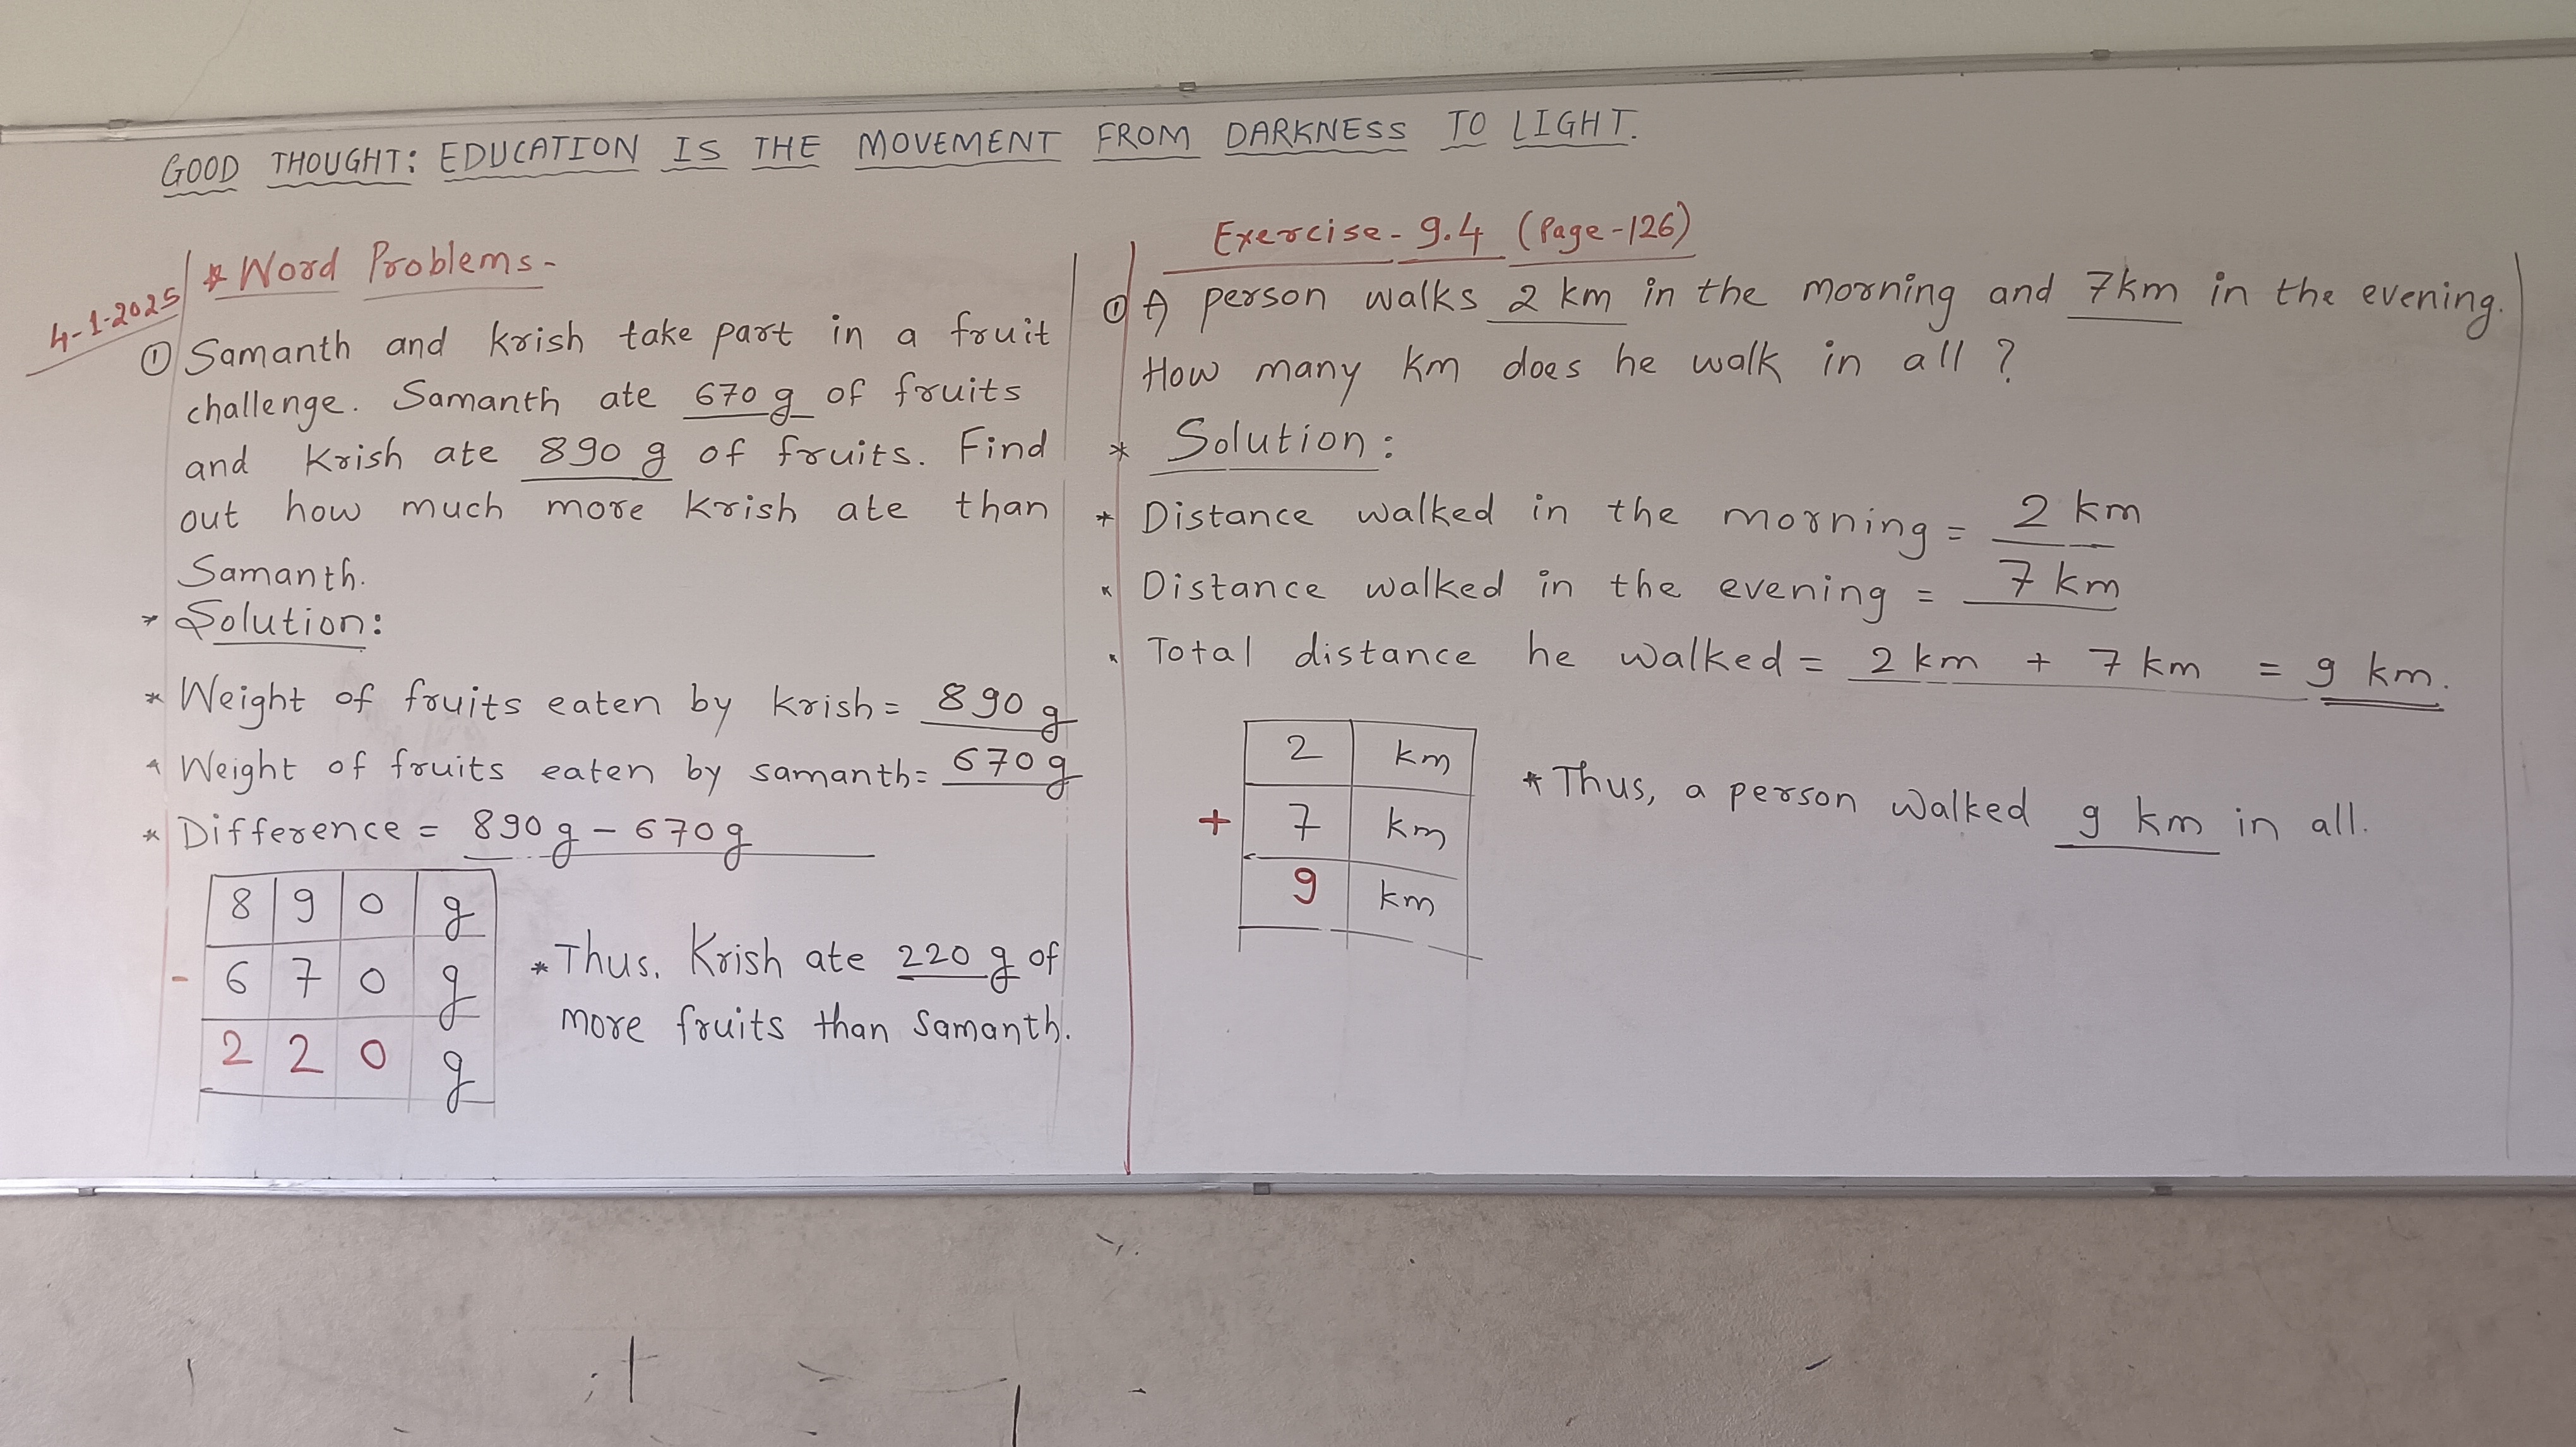 GOOD THOUGHT: EDUCATION IS THE MOVEMENT FROM DARKNESS TO LIGHT.
4-1-2025
* Word Problems-
① Samanth and Krish take part in a fruit
challenge. Samanth ate 670 g of fruits
and Krish ate 890 g of fruits. Find
out how much more Krish ate than
Samanth.
* Solution:
* Weight of fruits eaten by Krish = 890 g
* Weight of fruits eaten by samanth = 670 g
* Difference = 890 g - 670 g
8 9 0 g
- 6 7 0 g
2 2 0 g
* Thus, Krish ate 220 g of
more fruits than Samanth.
Exercise-9.4 (Page-126)
① A person walks 2 km in the morning and 7km in the evening.
How many km does he walk in all ?
* Solution:
* Distance walked in the morning = 2 km
* Distance walked in the evening = 7 km
* Total distance he walked = 2 km + 7 km = 9 km.
2 km
+ 7 km
9 km
* Thus, a person walked 9 km in all.